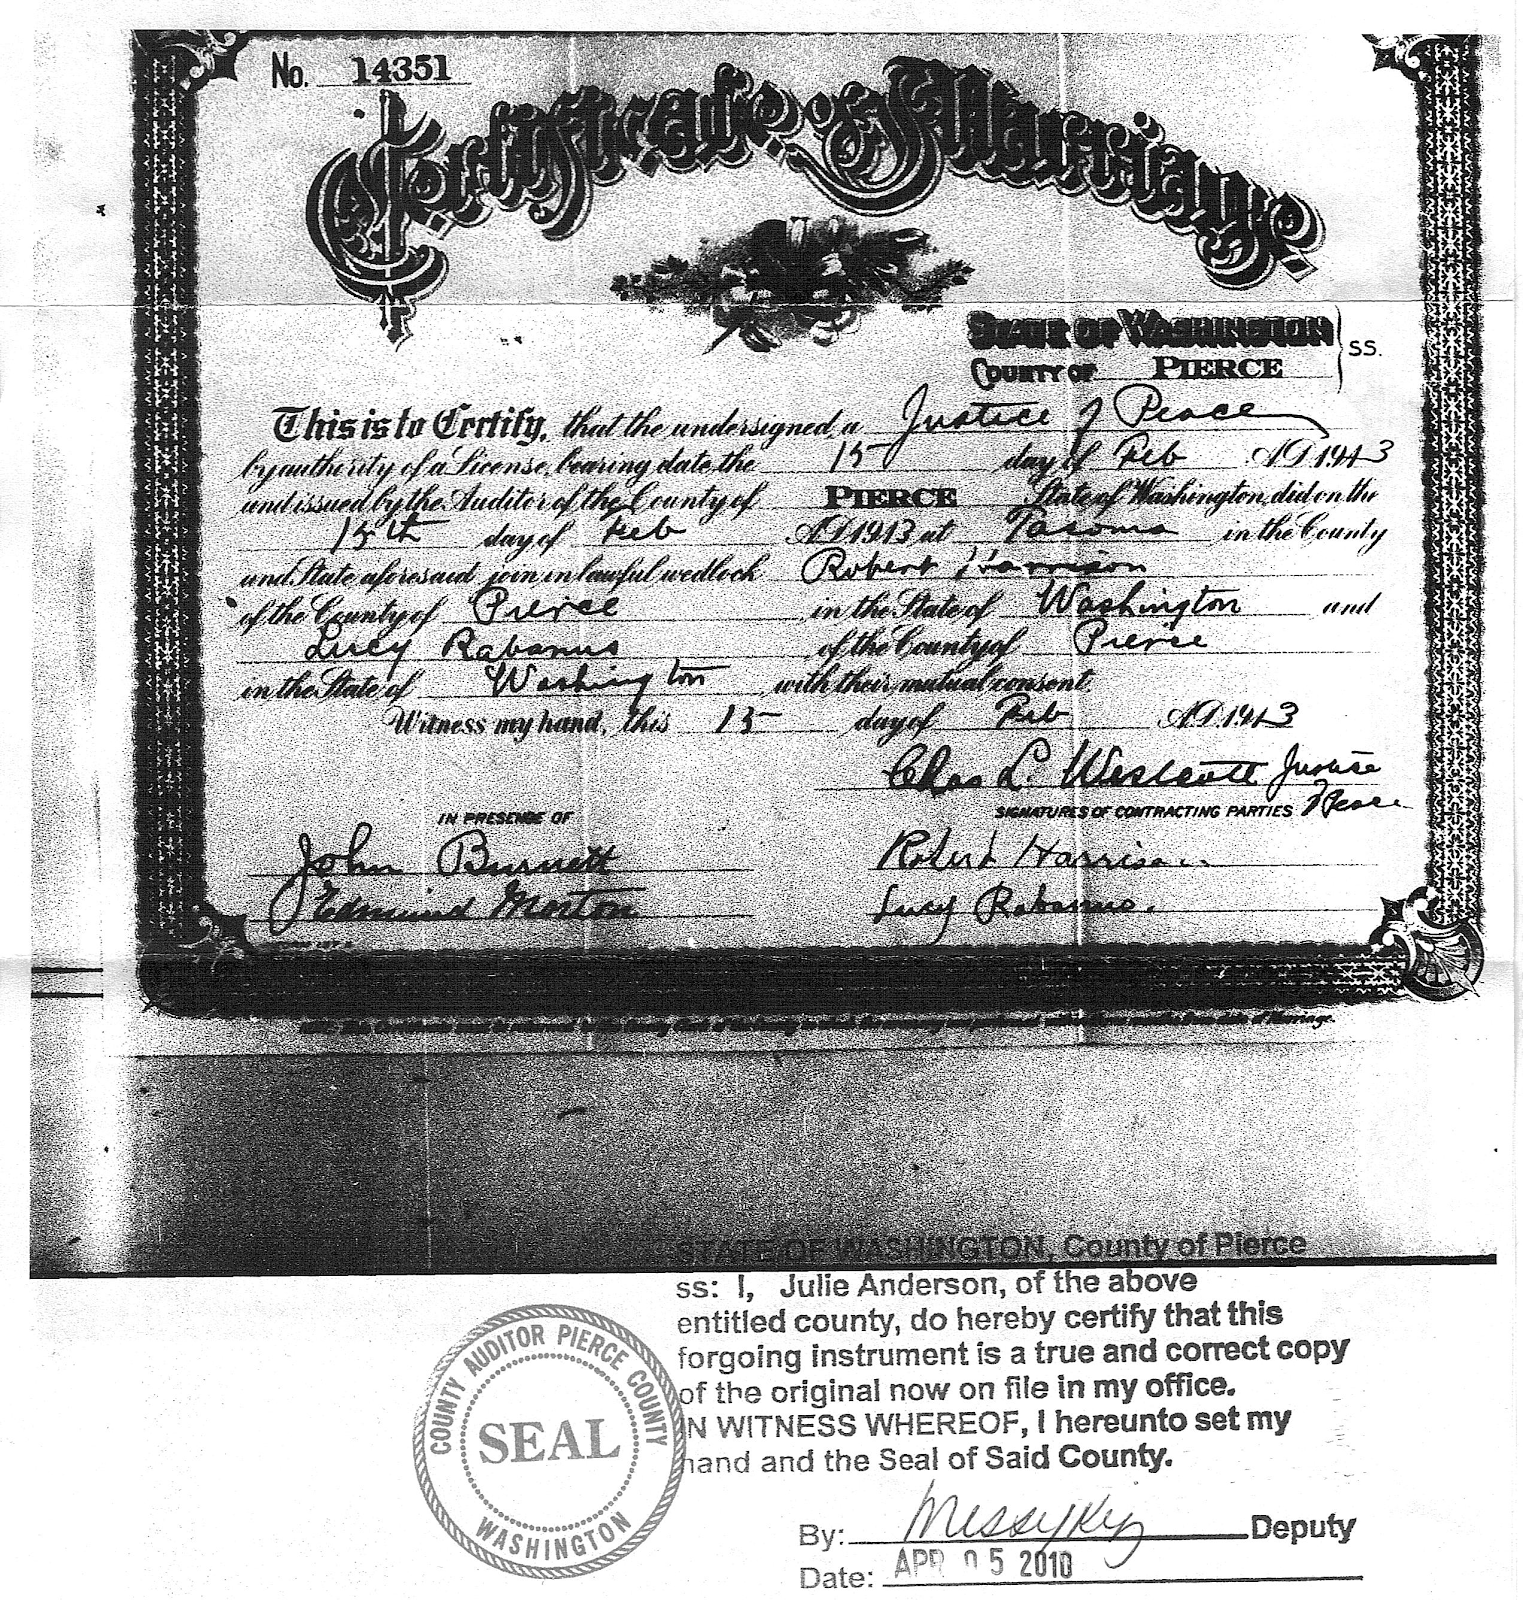 No. 14351
Certificate of Marriage
STATE OF WASHINGTON
COUNTY OF PIERCE ss.
This is to Certify, that the undersigned, a Justice of Peace
by authority of a License, bearing date the 15 day of Feb A.D. 1913
and issued by the Auditor of the County of PIERCE State of Washington, did on the
15th day of Feb A.D. 1913 at Tacoma in the County
and State aforesaid join in lawful wedlock Robert Harrison
of the County of Pierce in the State of Washington and
Lucy Rabanus of the County of Pierce
in the State of Washington with their mutual consent.
Witness my hand, this 15 day of Feb A.D. 1913
Chas L. Westcott Justice
of Peace
IN PRESENCE OF
SIGNATURES OF CONTRACTING PARTIES
John Burnett Robert Harrison
Edmund Morton Lucy Rabanus.
of Marriage.
STATE OF WASHINGTON, County of Pierce
ss: I, Julie Anderson, of the above
entitled county, do hereby certify that this
forgoing instrument is a true and correct copy
of the original now on file in my office.
IN WITNESS WHEREOF, I hereunto set my
hand and the Seal of Said County.
COUNTY AUDITOR PIERCE COUNTY
SEAL
WASHINGTON
By: Deputy
Date: APR 05 2010